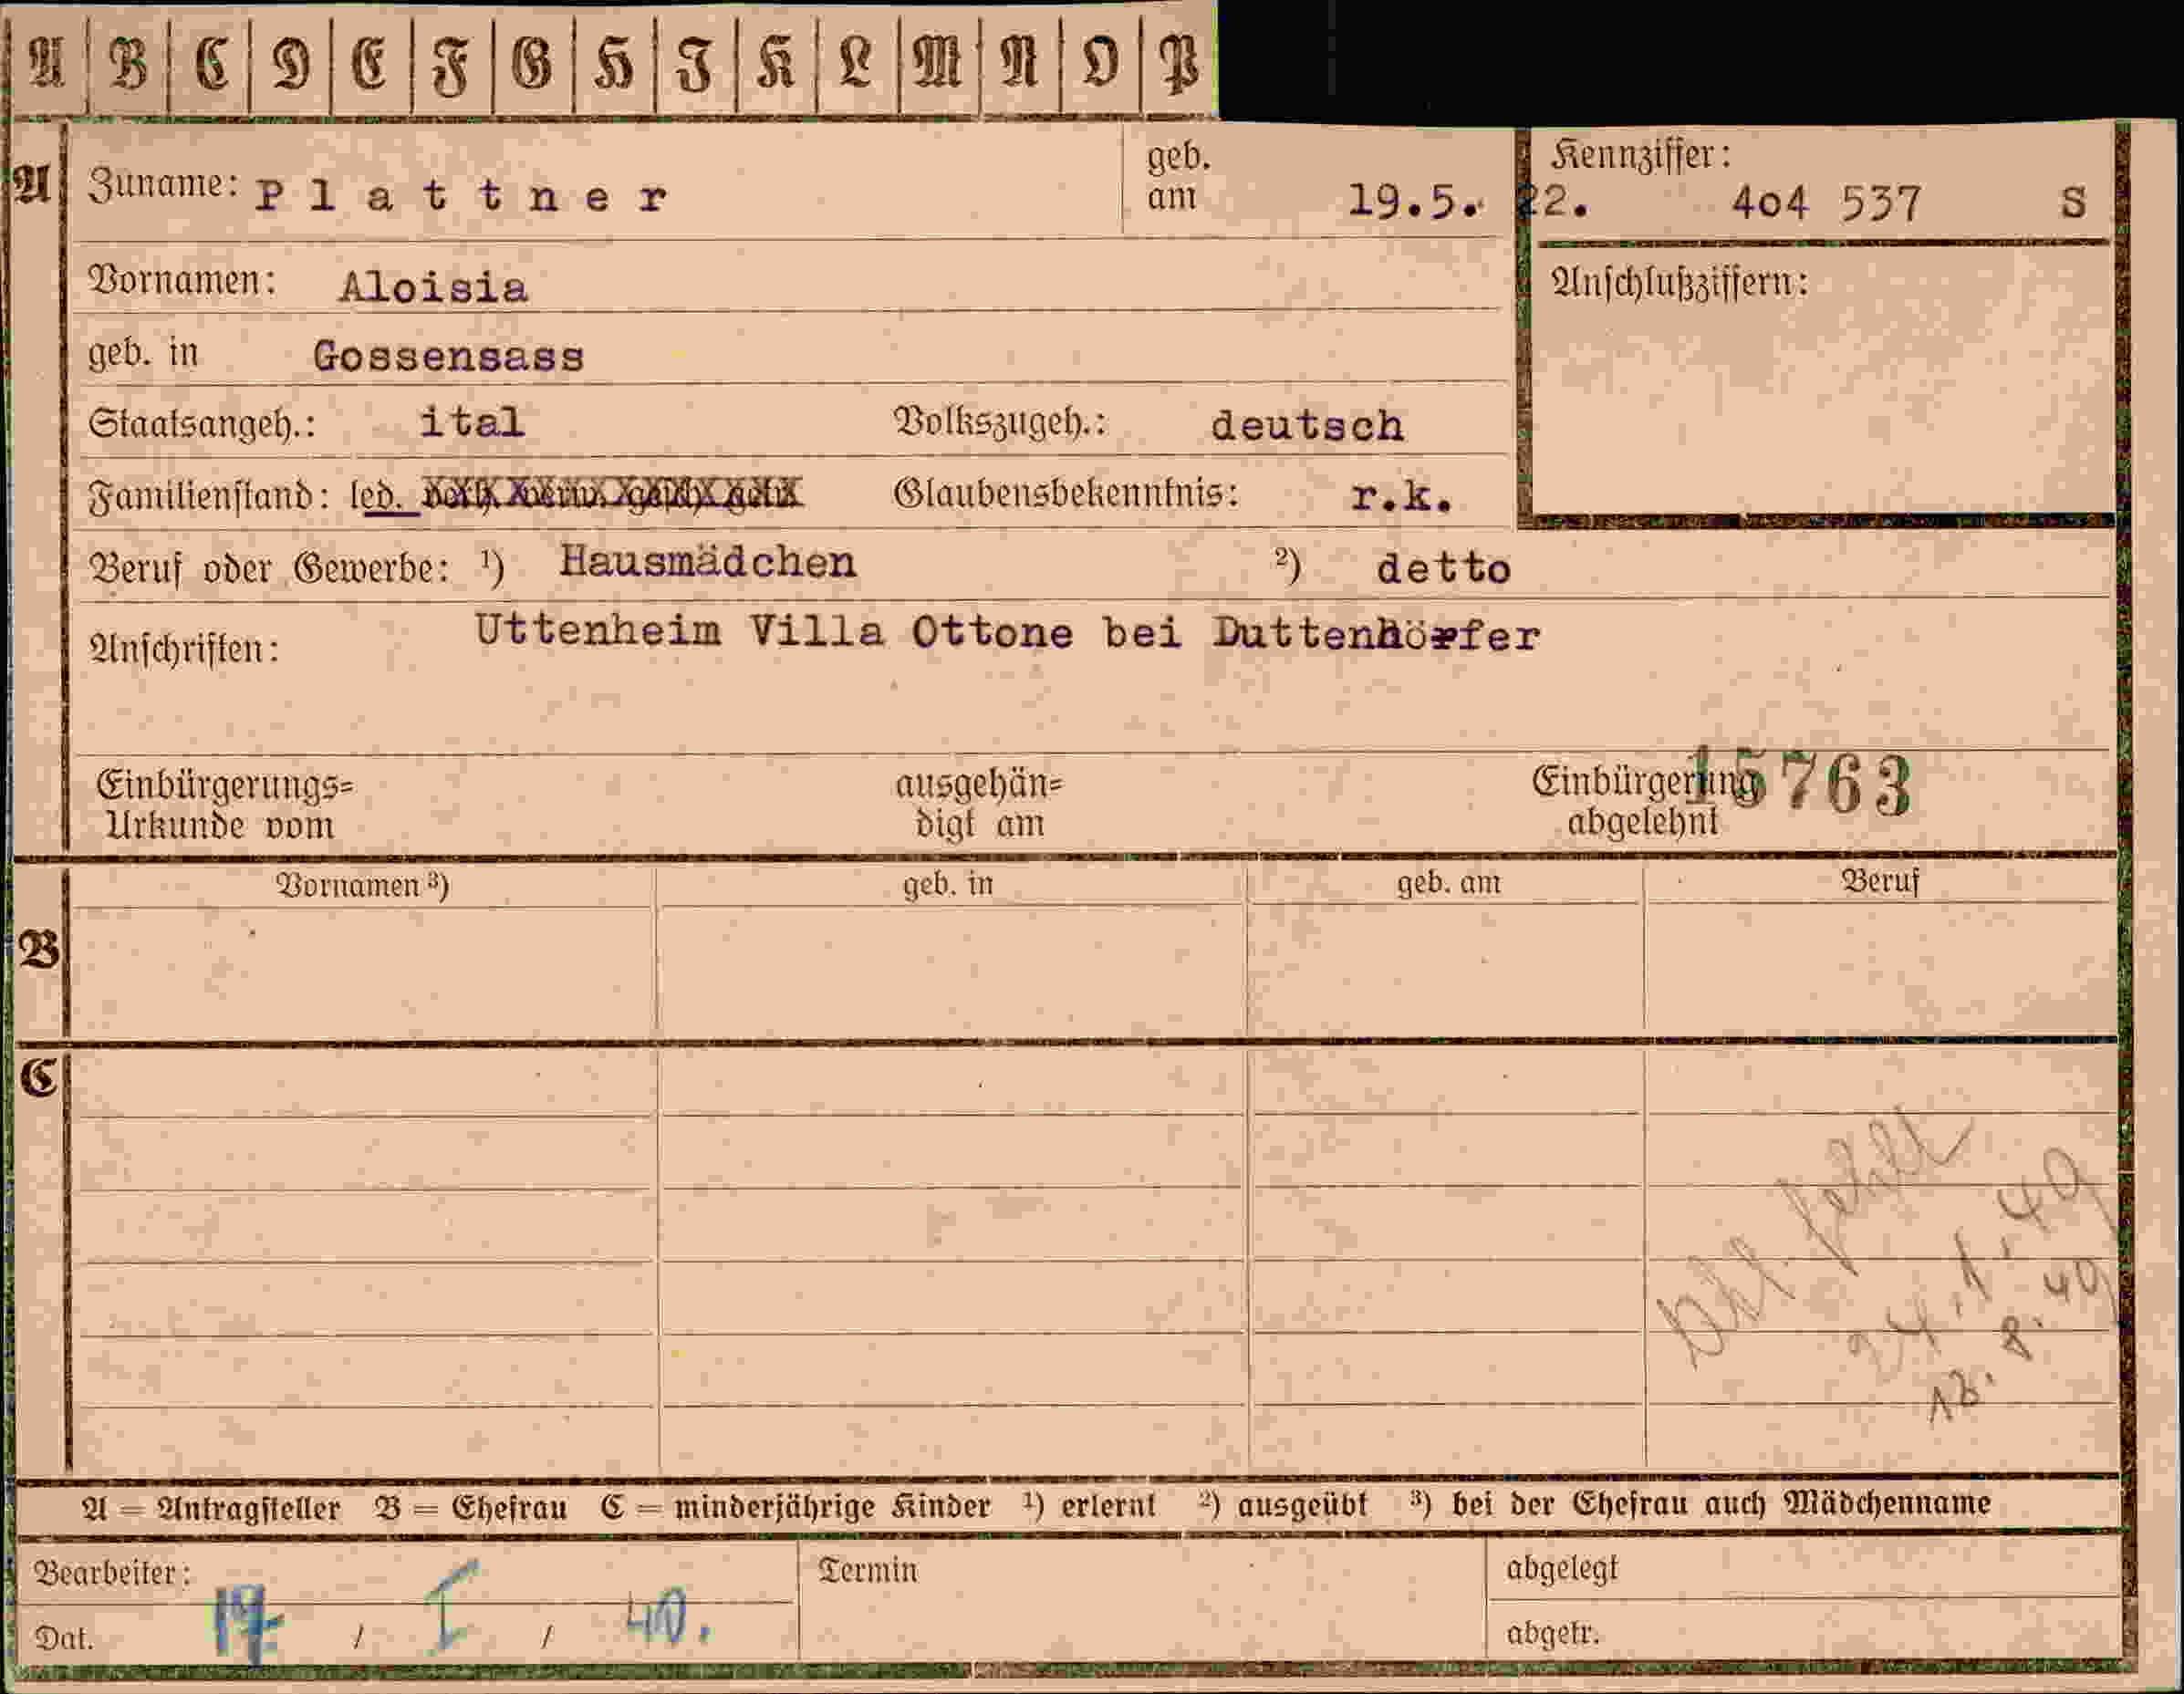 A B C D E F G H I K L M N O P
A Zuname: Plattner geb. am 19.5. 22. Kennziffer: 4o4 537 S
Vornamen: Aloisia Anschlußziffern:
geb. in Gossensass
Staatsangeh.: ital Volkszugeh.: deutsch
Familienstand: led. Glaubensbekenntnis: r.k.
Beruf oder Gewerbe: 1) Hausmädchen 2) detto
Anschriften: Uttenheim Villa Ottone bei Duttenhöfer
Einbürgerungs= ausgehän= Einbürgerung 15763
Urkunde vom digt am abgelehnt
Vornamen 3) geb. in geb. am Beruf
B
C
fehlt
24.1.49
8.49
A = Antragsteller B = Ehefrau C = minderjährige Kinder 1) erlernt 2) ausgeübt 3) bei der Ehefrau auch Mädchenname
Bearbeiter: Termin abgelegt
Dat. 17 / I / 40. abgetr.